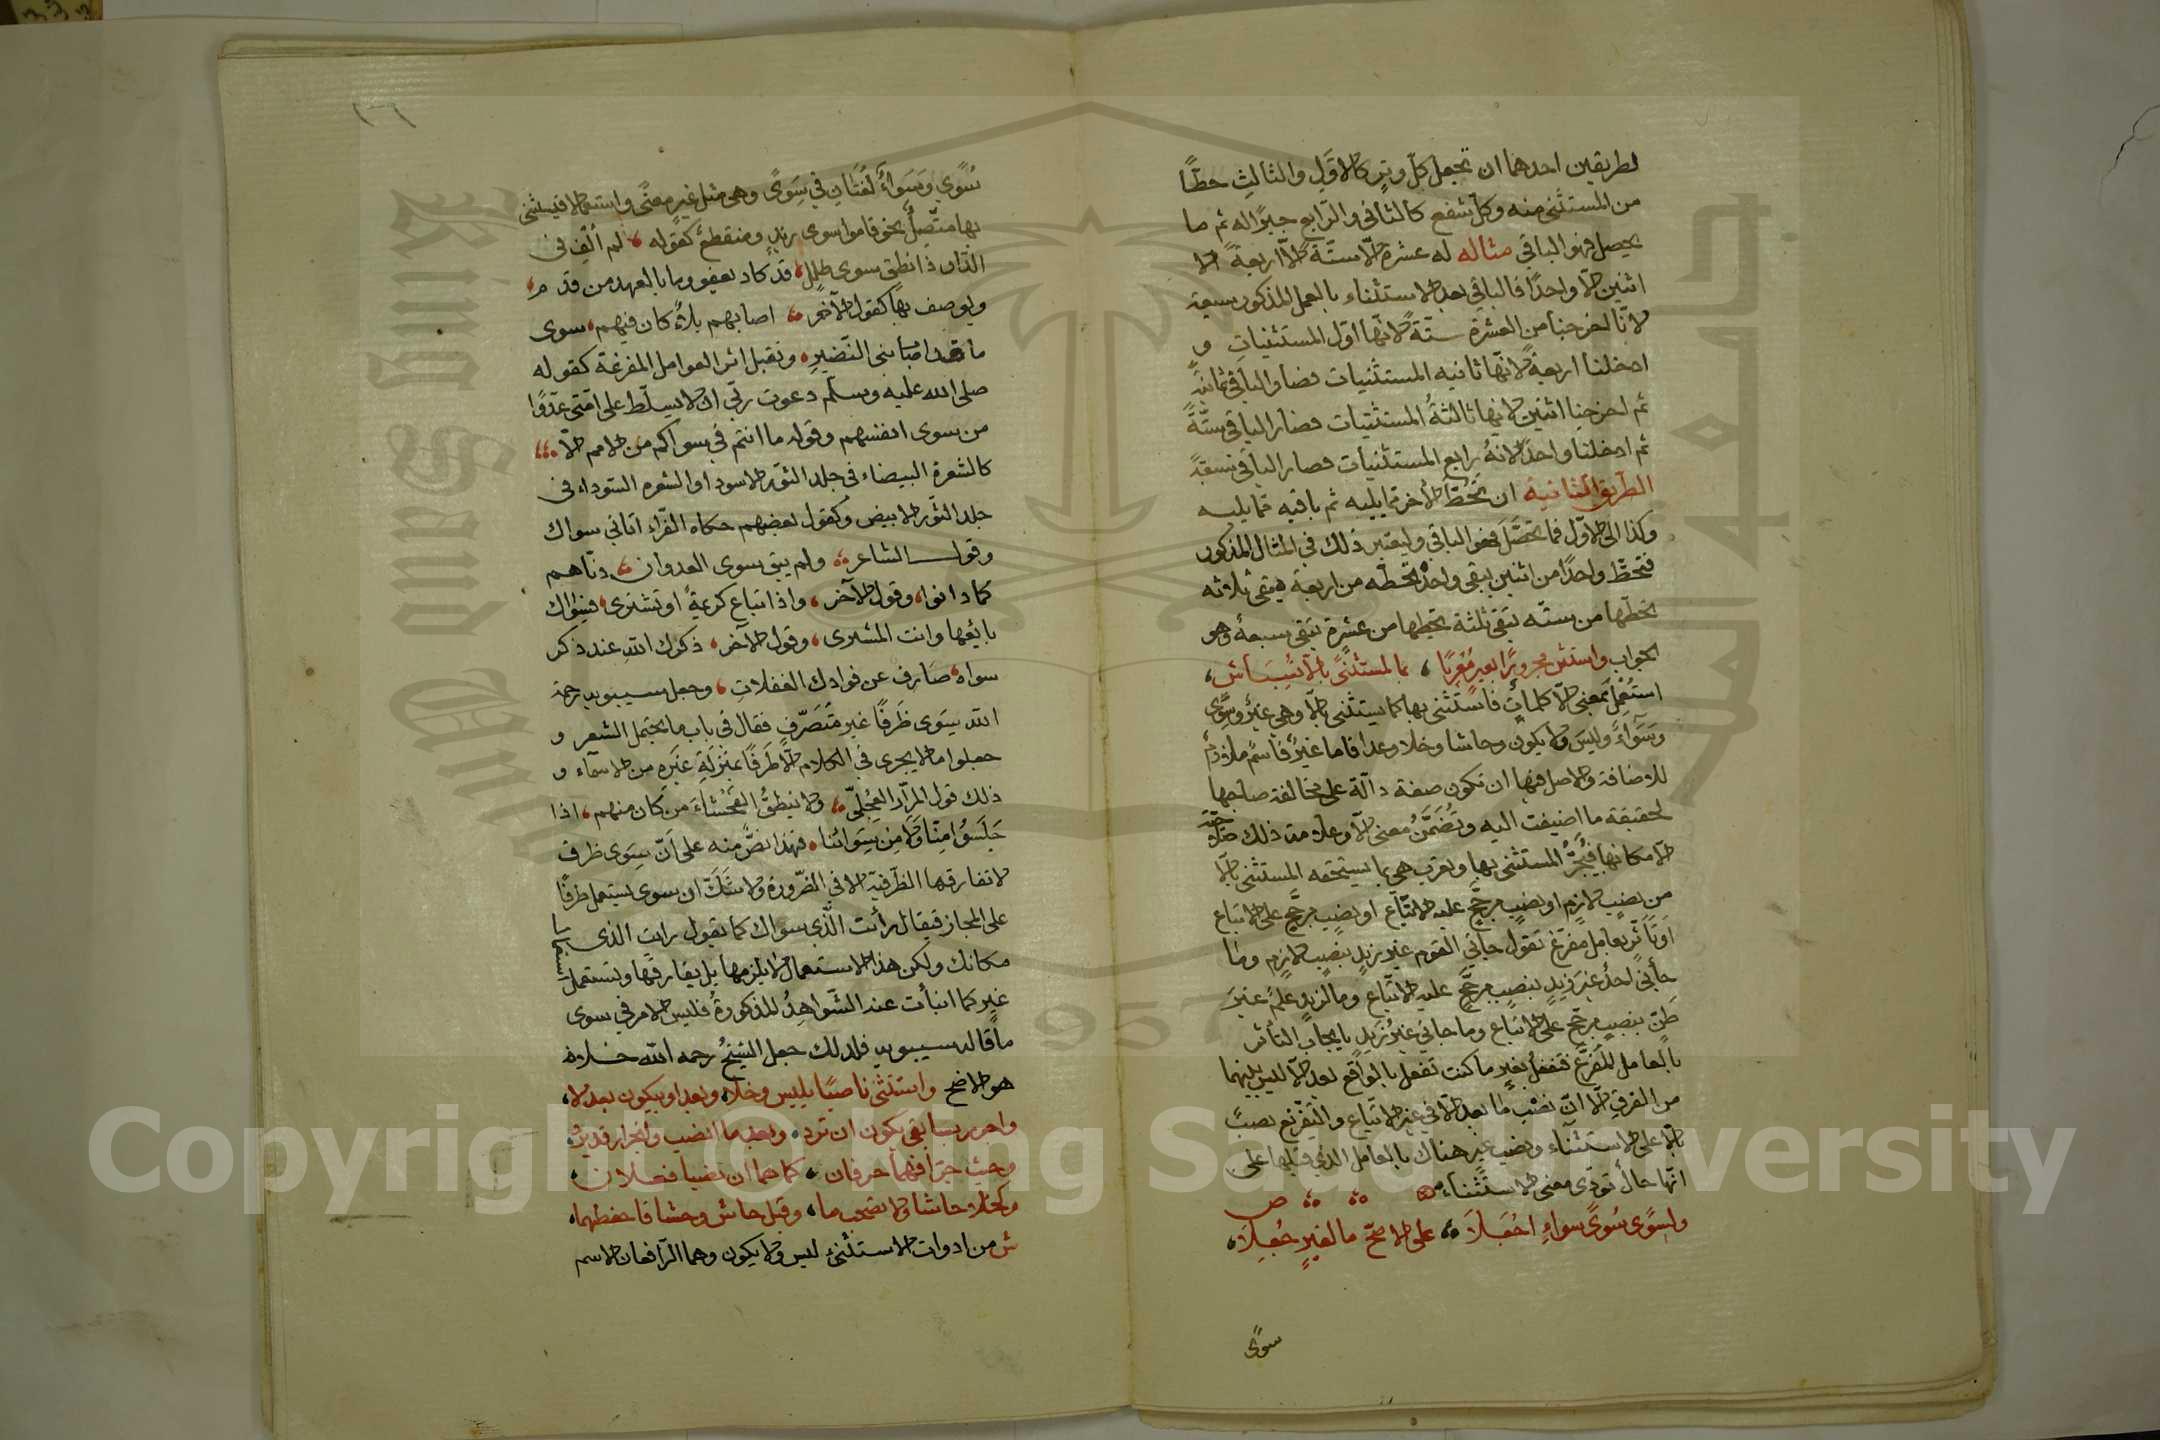 لطريقين احدهما ان تجعل كلّ وترٍ كالاوّلِ والثالثِ حطًّا
من المستثنى منه وكلّ شفع كالثاني والرّابع جبرًا له ثم ما
يحصل فهو الباقي مثاله له عشرة الّا ستّة الّا اربعةً الا
اثنين الّا واحدًا فالباقي بعد الاستثناء بالعمل المذكور سبعة
لانّا اخرجنا من العشرة ستّة لانّها اوّل المستثنيات و
ادخلنا اربعة لانّها ثانيه المستثنيات فصار الباقي ثمانيةً
ثم اخرجنا اثنين لانها ثالثةُ المستثنيات فصار الباقي ستّةً
ثم ادخلنا واحدًا لانهُ رابع المستثنيات فصار الباقي سبعةً
الطريق الثانية ان تحُطّ الآخر ممّا يليه ثم باقيه ممّا يليه
وكذا الى الاوّل فما تحصّل فهو الباقي وليعتبر ذلك في المثال المذكور
فتحطّ واحدًا من اثنين يبقى واحدٌ تحطّه من اربعة يبقى ثلاثه
تحطّها من ستّه يبقى ثلثة تحطها من عشرةٍ يبقى سبعةٌ وهو
الجواب واستثن مجرورًا بغيرٍ مُعْرِبًا ؛ بما لمستثنىً بالّا نُسِبَا ش ؛
استُعْمِل بمعنى الّا كلماتٍ فاستثنى بها كما يستثنى بالّا وهي غيرٌ وسِوًى
وسَوَآءٌ وليسَ ولا يكون وحاشا وخلا وعدا فاما غيرٌ فاسمٌ ملازمٌ
للاضافة والاصل فيها ان تكون صفة دالّة على مخالفة صاحبها
لحقيقة ما اضيفت اليه وتُضَمَّنُ معنى الّا وعلامة ذلك صلاحيّة
الّا مكانها فيُجَرُّ المستثنى بها وتعرب هي بما يستحقه المستثنى بالّا
من نصبٍ لازم او نصبٍ مرجَّحٍ عليه الاتّباع او نصبٍ مرجَّحٍ على الاتباع
او تأثّر بعامل مفرّغ تقول جاني القوم غير زيدٍ بنصبٍ لازم وما
جآني احدٌ غير زيدٍ بنصبٍ مرجَّحٍ عليه الاتّباع وما لزيدٍ علمٌ غيرَ
ظنّ بنصبٍ مرجّحٍ على الاتباع وما جاني غيرُ زيدٍ بايجاب التأثر
بالعامل المفرّغ فتفعل بغيرٍ ما كنت تفعل بالواقع بعد الّا ليس بينهما
من الفرق الّا انّ نصب ما بعد الّا في غير الاتّباع والتفريغ نصبٌ
بالّا على الاستثنآء ونصب غير هناك بالعامل الذي قبلها على
انّها حال تؤدّى معنى الاستثناء ؛ ؛ ص
ولِسوًى سُوًى سواءٍ اجْعَلَا ؛ على الاصحّ ما لغيرٍ جُعِلَا ؛
سوًى
١٣٦
سُوًى وسَوَاءٌ لُغتانِ في سِوًى وهي مثل غيرٍ معنًى واستعمالا فيستثنى
بها متّصلٌ نحو قاموا سوى زيدٍ ومنقطعٌ كقوله ؛ لم ألفِ في
الدّار ذا نطقٍ سوى طللٍ ؛ قد كاد يعفو وما بالعهد من قدم ؛
ويوصف بها كقول الآخر ؛ اصابهم بلاءٌ كان فيهم ؛ سوى
ما قد اصاب بنى النّضيرِ ؛ وتقبل اثر العوامل المفرغة كقوله
صلى الله عليه وسلّم دعوت ربّي ان لا يسلّط على امّتى عدوًّا
من سوى انفسهم وقوله ما انتم في سواكم من الامم الّا ؛
كالشعرة البيضاء في جلد الثور الاسود او الشعرة السّوداء في
جلد الثّور الابيض وكقول بعضهم حكاه الفرّاء اتاني سواك
وقول الشاعر ؛ ولم يبق سوى العدوان ؛ دنّاهم
كما دانوا ؛ وقول الآخر ؛ واذا تباع كريمةٌ او تشترى ؛ فسواك
بايعها وانت المشترى ؛ وقول الآخر ؛ ذكرك الله عند ذكر
سواه ؛ صارف عن فوادك الغفلاتِ ؛ وجعل سيبويه رحمه
الله سِوَى ظرفًا غير متصَرّفٍ فقال في باب ما يحتمل الشعر و
جعلوا ما لا يجرى في الكلام الّا ظرفًا بمنزلةِ غيرِهِ من الاسمآء و
ذلك قول المرّار العجليّ ؛ ولا ينطقُ الفَحْشَاءَ من كان منهم ؛ اذا
جَلَسُوا مِنّا وَلا مِن سِوَائِنا ؛ فهذا نصٌّ منه على انّ سِوَى ظرف
لا تفارقها الظرفيّة الا في الضّرورة ولا شكّ ان سوى يستعمل ظرفًا
على المجاز فيقال رأيت الّذي سواك كما تقول رايت الذى
مكانك ولكن هذا الاستعمال لا يلزمها بل يفارقها وتستعمل استعمال
غير كما انبأت عنه الشّواهدُ المذكورةُ فليس الامر في سوى
ما قاله سيبويه فلذلك جعل الشيخُ رحمه الله خلافه
هو الاصح واستثن ناصبًا بليس وخلا ؛ وبعدا وبيكون بعد لا ؛
واجرر بسابقى يكون ان ترد ؛ وبعد ما انصب وانجرار قد يرد ؛
وحيث جرّا فهما حرفان ؛ كما هما ان نصبا فعلان ؛
وكخلا حاشا ولا تصحب ما ؛ وقيل حاش وحشا فاحفظهما ؛
ش من ادوات الاستثنى ليس ولا يكون وهما الرّافعان الاسم
Copyright © King Saud University
جامعة الملك سعود
King Saud University
1957